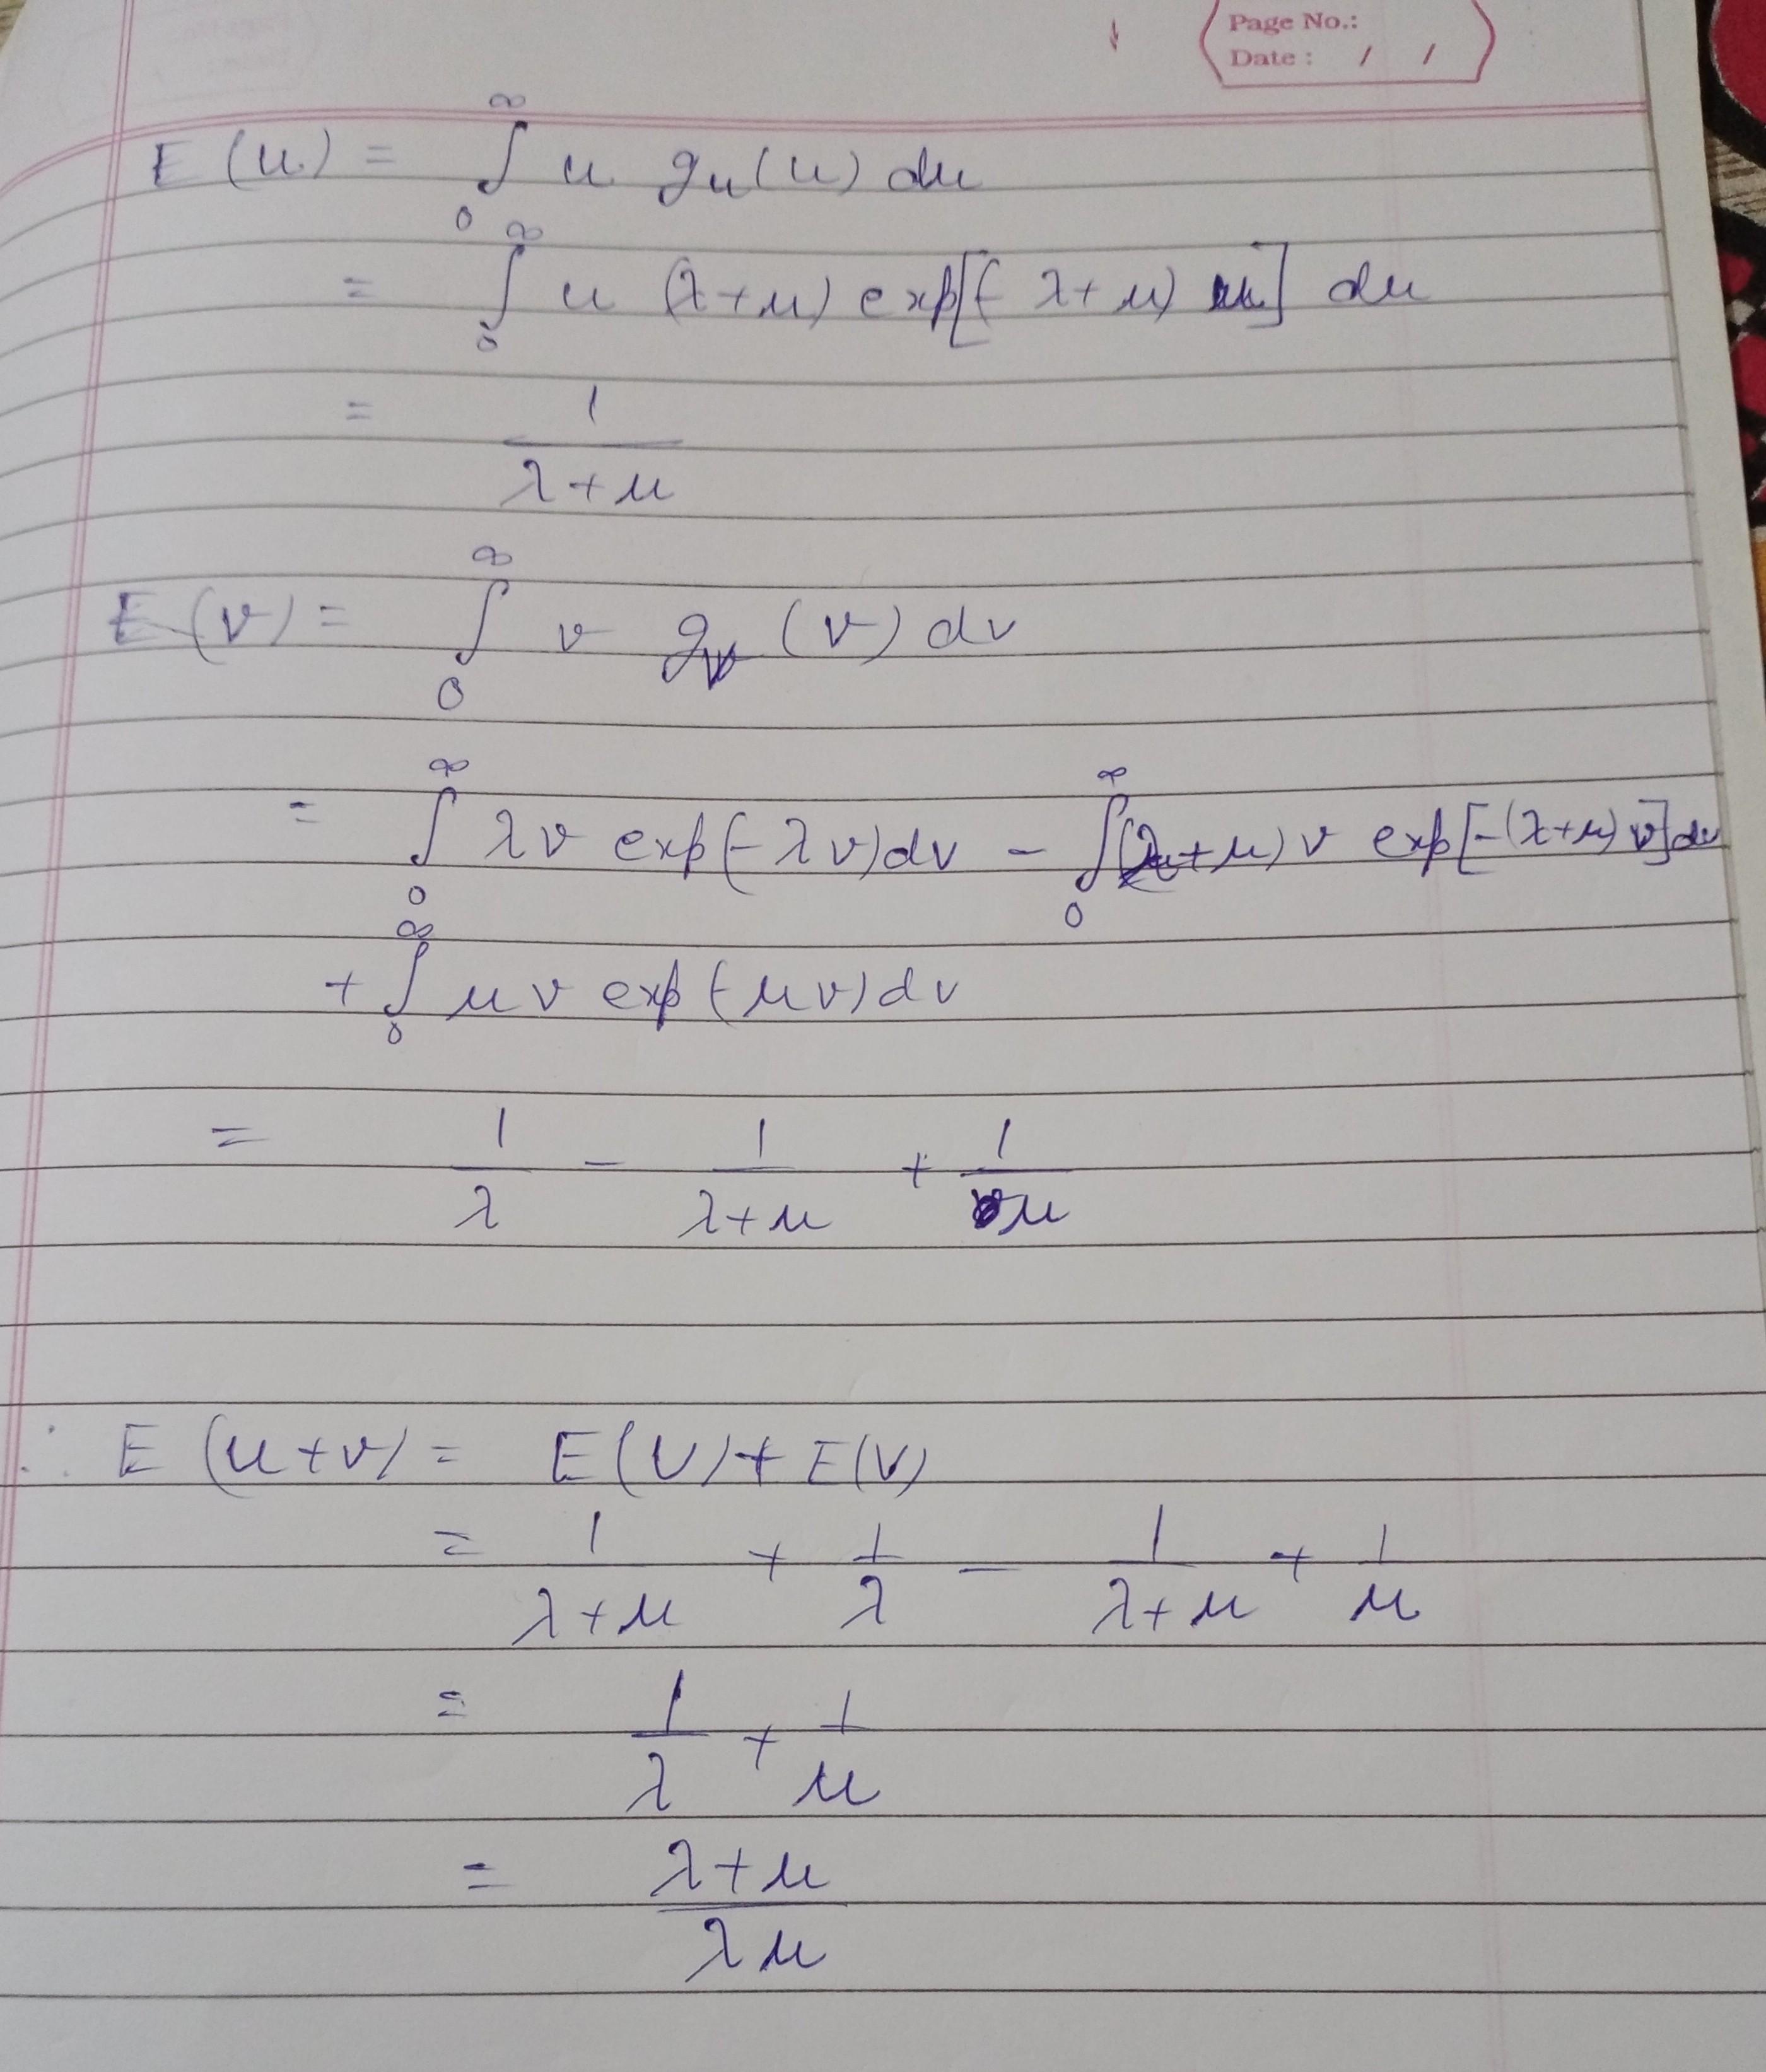 Page No.:
Date : / /
E(u) = ∫₀^∞ u gᵤ(u) du
= ∫₀^∞ u (λ+μ) exp[(- λ+μ) u] du
= 1/(λ+μ)
E(v) = ∫₀^∞ v g_v (v) dv
= ∫₀^∞ λv exp(-λv)dv - ∫₀^∞ (λ+μ) v exp[-(λ+μ) v] dv
+ ∫₀^∞ μ v exp(-μv)dv
= 1/λ - 1/(λ+μ) + 1/μ
∴ E(u+v) = E(U) + E(V)
= 1/(λ+μ) + 1/λ - 1/(λ+μ) + 1/μ
= 1/λ + 1/μ
= (λ+μ)/(λμ)